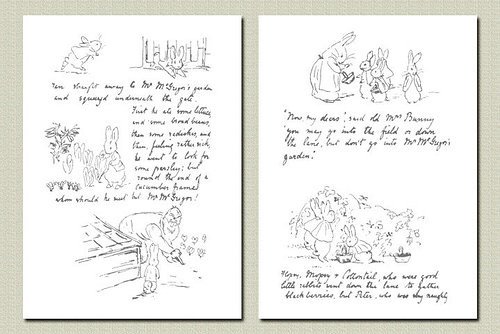 ran straight away to Mr McGregor's garden
and squeezed underneath the gate.
First he ate some lettuce,
and some broad beans,
then some radishes, and
then, feeling rather sick,
he went to look for
some parsley; but
round the end of a
cucumber frame
whom should he meet but Mr McGregor!
"Now my dears", said old Mrs Bunny
"you may go into the field or down
the lane, but don't go into Mr McGregor's
garden."
Flopsy, Mopsy & Cottontail, who were good
little rabbits went down the lane to gather
blackberries, but Peter, who was very naughty